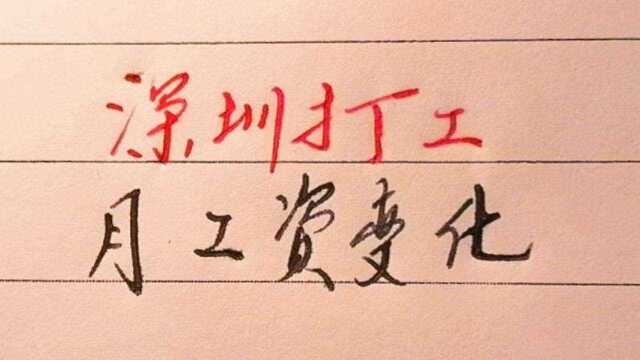 深圳打工
月工资变化